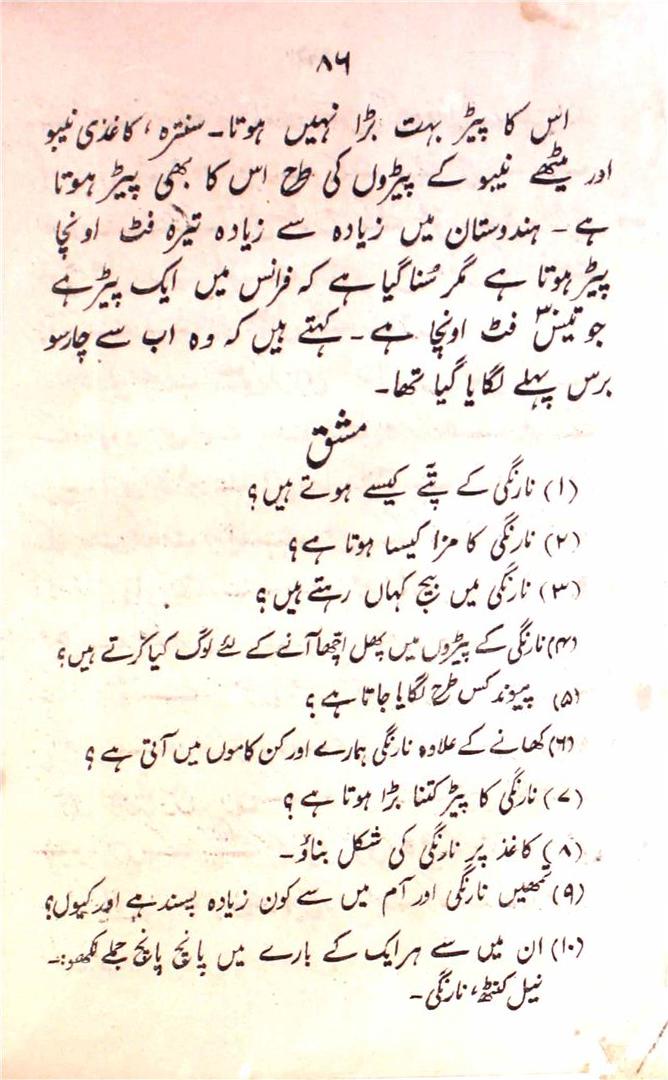 ۸۶
اس کا پیڑ بہت بڑا نہیں ہوتا۔ سنترہ، کاغذی نیبو
اور میٹھے نیبو کے پیڑوں کی طرح اس کا بھی پیڑ ہوتا
ہے۔ ہندوستان میں زیادہ سے زیادہ تیرہ فٹ اونچا
پیڑ ہوتا ہے مگر سُنا گیا ہے کہ فرانس میں ایک پیڑ ہے
جو تیس فٹ اونچا ہے۔ کہتے ہیں کہ وہ اب سے چار سو
برس پہلے لگایا گیا تھا۔
مشق
(۱) نارنگی کے پتّے کیسے ہوتے ہیں؟
(۲) نارنگی کا مزا کیسا ہوتا ہے؟
(۳) نارنگی میں بیج کہاں رہتے ہیں؟
(۴) نارنگی کے پیڑوں میں پھل اچھا آنے کے لئے لوگ کیا کرتے ہیں؟
(۵) پیوند کس طرح لگایا جاتا ہے؟
(۶) کھانے کے علاوہ نارنگی ہمارے اور کن کاموں میں آتی ہے؟
(۷) نارنگی کا پیڑ کتنا بڑا ہوتا ہے؟
(۸) کاغذ پر نارنگی کی شکل بناؤ۔
(۹) تمھیں نارنگی اور آم میں سے کون زیادہ پسند ہے اور کیوں؟
(۱۰) ان میں سے ہر ایک کے بارے میں پانچ پانچ جملے لکھو:۔
نیل کنٹھ، نارنگی۔